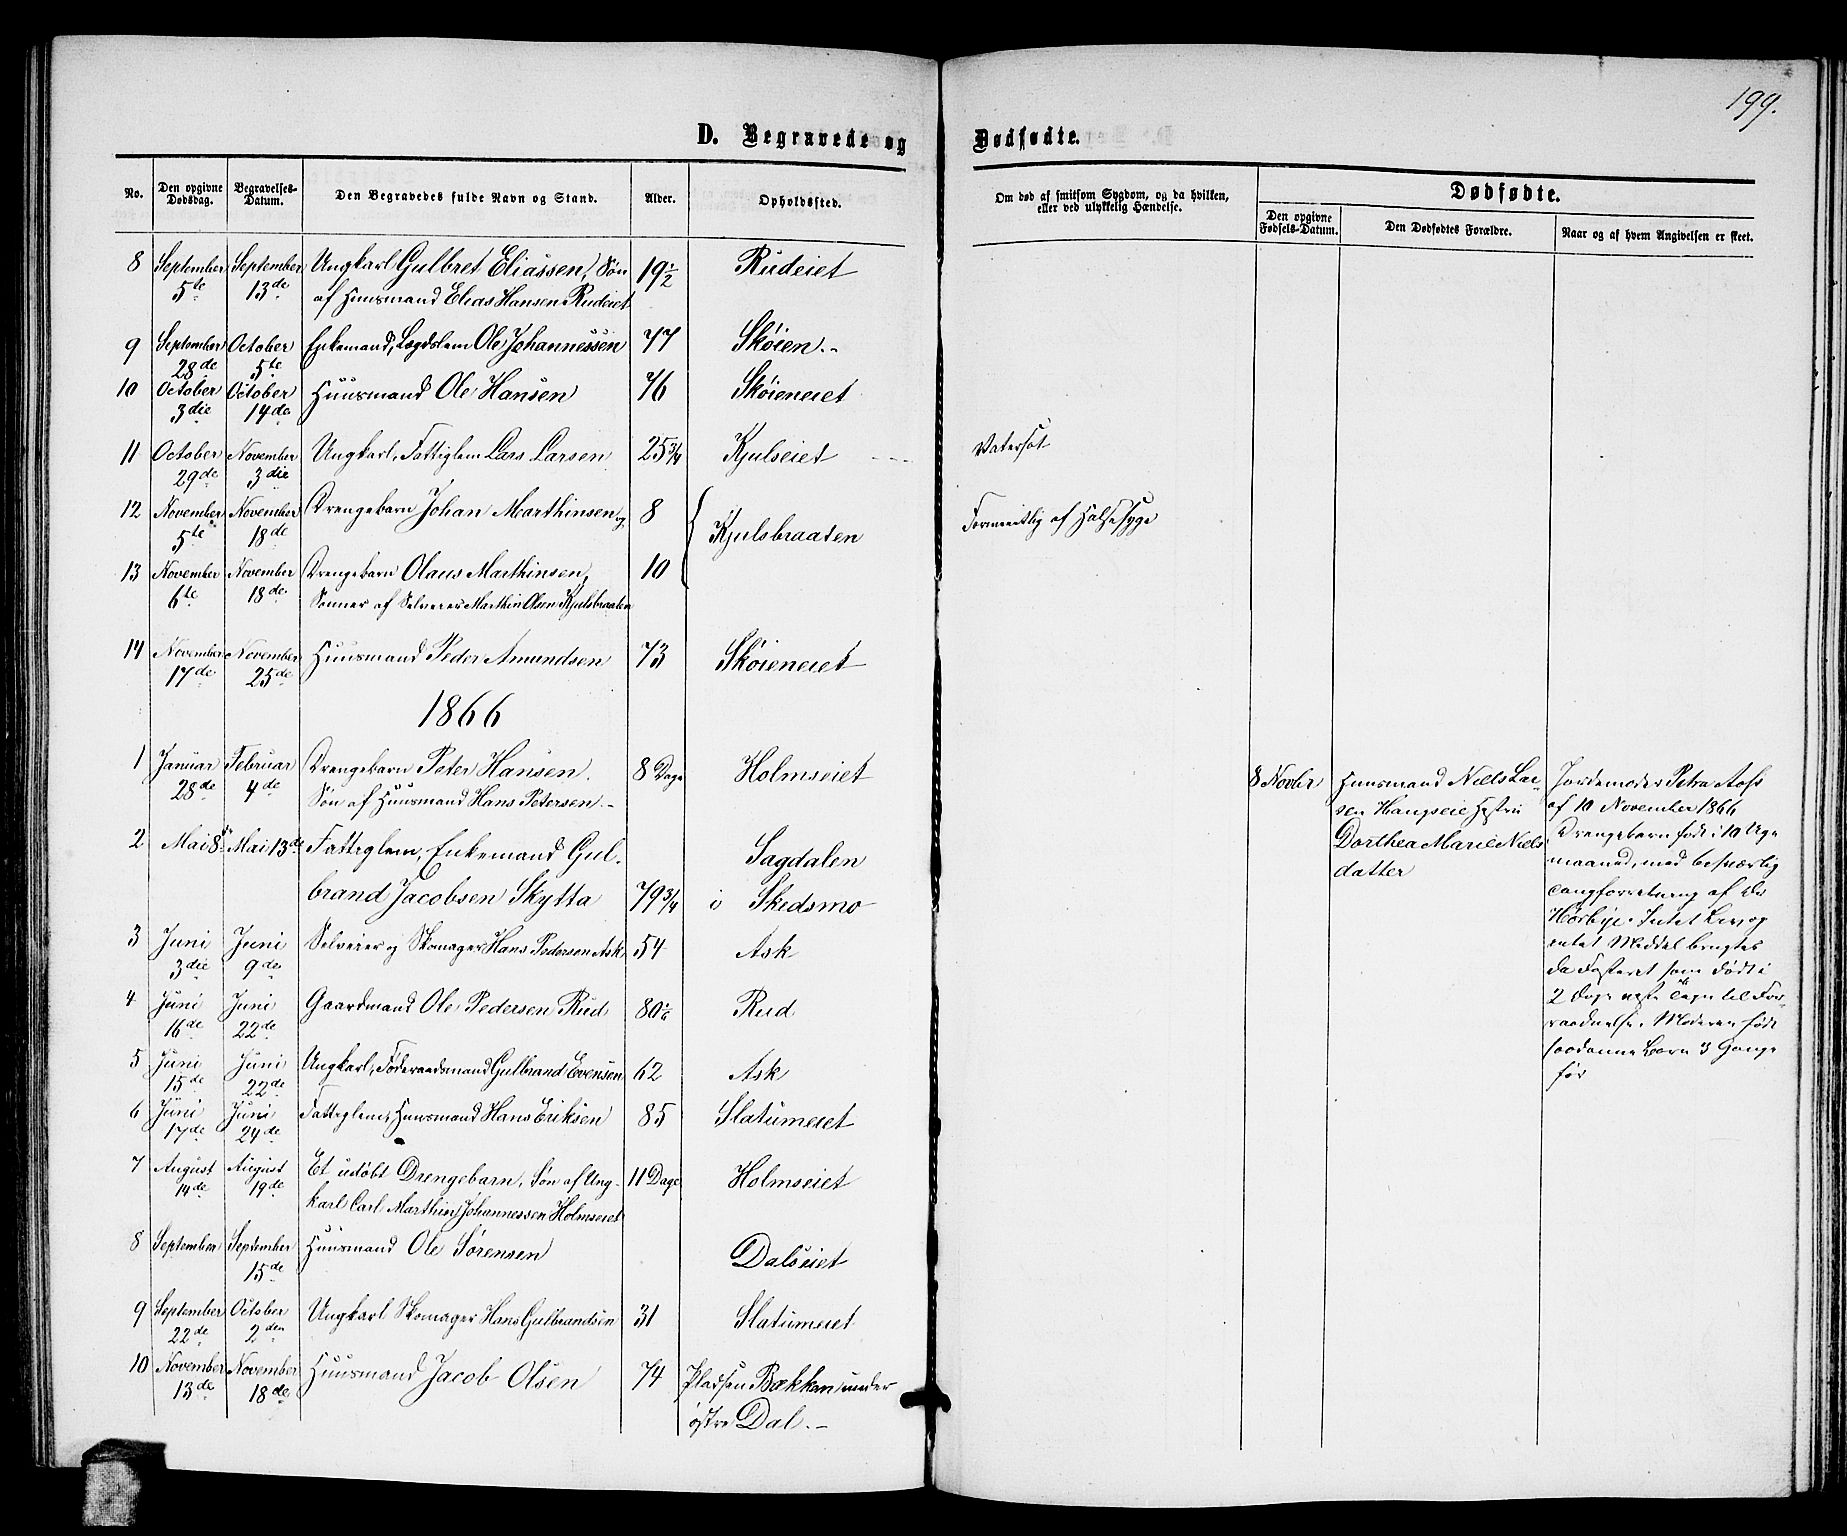 199.
D. Begravede og Dødfødte.
No. Den opgivne Dødsdag. Begravelses-Datum. Den Begravedes fulde Navn og Stand. Alder. Opholdssted. Om død af smitsom Sygdom, og da hvilken, eller ved ulykkelig Hændelse. Dødfødte.
Den opgivne Fødsels-Datum. Den Dødfødtes Forældre. Naar og af hvem Angivelsen er skeet.
8 September September Ungkarl Gulbret Eliassen, Søn 19 1/2 Rudeiet
5te 13de af Huusmand Elias Hansen Rudeiet
9 September October Enkemand, Lægdslem Ole Johannessen 77 Skøien.-
28de 5te
10 October October Huusmand Ole Hansen 76 Skøieneiet
3die 14de
11 October November Ungkarl, Fattiglem Lars Larsen 25 3/4 Kjulseiet Vatersot
29de 3die
12 November November Drengebarn Johan Marthinsen og 8 Kjulsbraaten Formeentlig af Halssyge
5te 18de
13 November November Drengebarn Olaus Marthinsen, 10
6te 18de Sønner af Selveier Marthin Olsen Kjulsbraaten
14 November November Huusmand Peder Amundsen 73 Skøieneiet
17de 25de
1866
1 Januar Februar Drengebarn Peter Hansen. 8 Dage Holmseiet
28de 4de Søn af Huusmand Hans Petersen.-
2 Mai 8de Mai 13de Fattiglem, Enkemand Gul- Sagdalen
brand Jacobsen Skytta 79 3/4 i Skedsmo
3 Juni Juni Selveier og Skomager Hans Pedersen Ask 54 Ask
3die 9de
4 Juni Juni Gaardmand Ole Pedersen Rud 80 Rud
16de 22de
5 Juni Juni Ungkarl, Føderaadsmand Gulbrand Evensen 62 Ask
15de 22de
6 Juni Juni Fattiglem, Huusmand Hans Eriksen 85 Slatumeiet
17de 24de
7 August August Et udøbt Drengebarn, Søn af Ung- 11 Dage Holmseiet
14de 19de karl Carl Marthin Johannessen Holmseiet
8 September September Huusmand Ole Sørensen Dalseiet
15de
9 September October Ungkarl Skomager Hans Gulbrandsen 31 Slatumeiet
22de 2den
10 November November Huusmand Jacob Olsen 74 Pladsen Bækken under
13de 18de østre Dal.-
8 Novbr Huusmand Niels Lar- Jordemoder Petra
sen Haugseie Hustru af 10 November 1866
Dorthea Marie Niels- Drengebarn født i 10 Uge
datter maaned, med besværlig
Tangforretning af Dr
Hørbye. Intet Liv, og
intet Middel brugtes
da Fosteret som dødt i
2 Dage var til For-
raadnelse. Moderen født
saadanne Børn 3 Gange
før